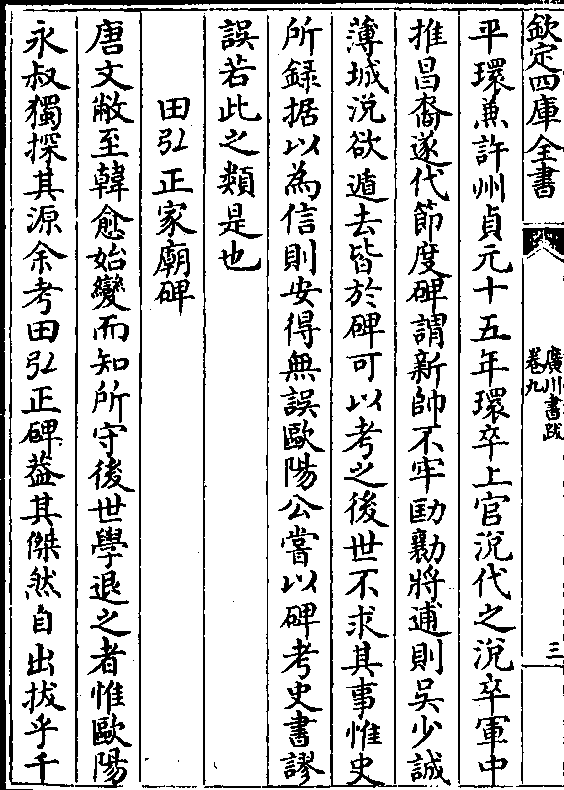 欽定四庫全書
廣川書跋
卷九
三
平環兼許州貞元十五年環卒上官涗代之涗卒軍中
推昌裔遂代節度碑謂新帥不牢劻勷將逋則吳少誠
薄城涗欲遁去皆於碑可以考之後世不求其事惟史
所録据以為信則安得無誤歐陽公嘗以碑考史書謬
誤若此之類是也
田弘正家廟碑
唐文敝至韓愈始變而知所守後世學退之者惟歐陽
永叔獨探其源余考田弘正碑葢其傑然自出拔乎千